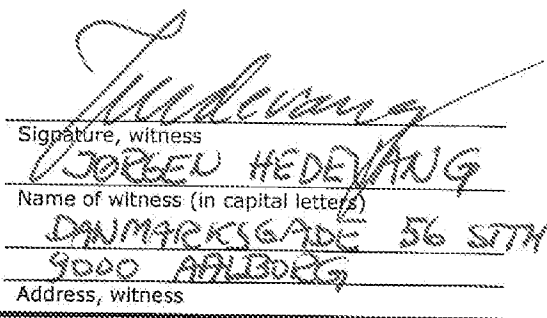 Signature, witness
JORGEN HEDEVANG
Name of witness (in capital letters)
DANMARKSGADE 56 STTH
9000 AALBORG
Address, witness